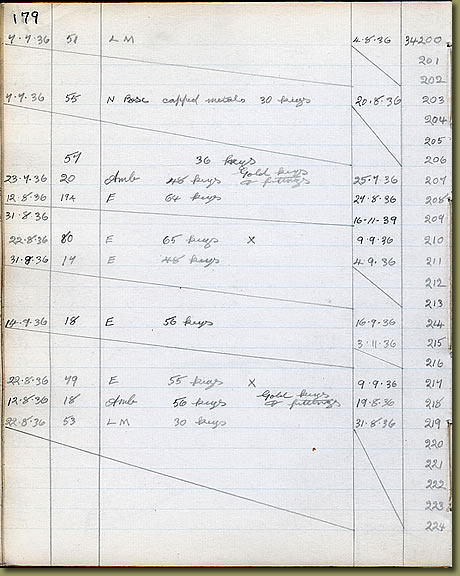 179
7.7.36 51 L M 4.8.36 34200
201
202
7.7.36 55 N Base capped metals 30 keys 20.8.36 203
204
205
57 36 keys 206
Gold keys
23.7.36 20 Amb 48 keys & fittings 25.7.36 207
12.8.36 19A E 64 keys 27.8.36 208
31.8.36 16-11-39 209
22.8.36 80 E 65 keys X 9.9.36 210
31.8.36 17 E 48 keys 4.9.36 211
212
213
14.9.36 18 E 56 keys 16.9.36 214
3.11.36 215
216
22.8.36 79 E 55 keys X 9.9.36 217
Gold keys
12.8.36 18 Amb 56 keys & fittings 19.8.36 218
22.8.36 53 L M 30 keys 31.8.36 219
220
221
222
223
224